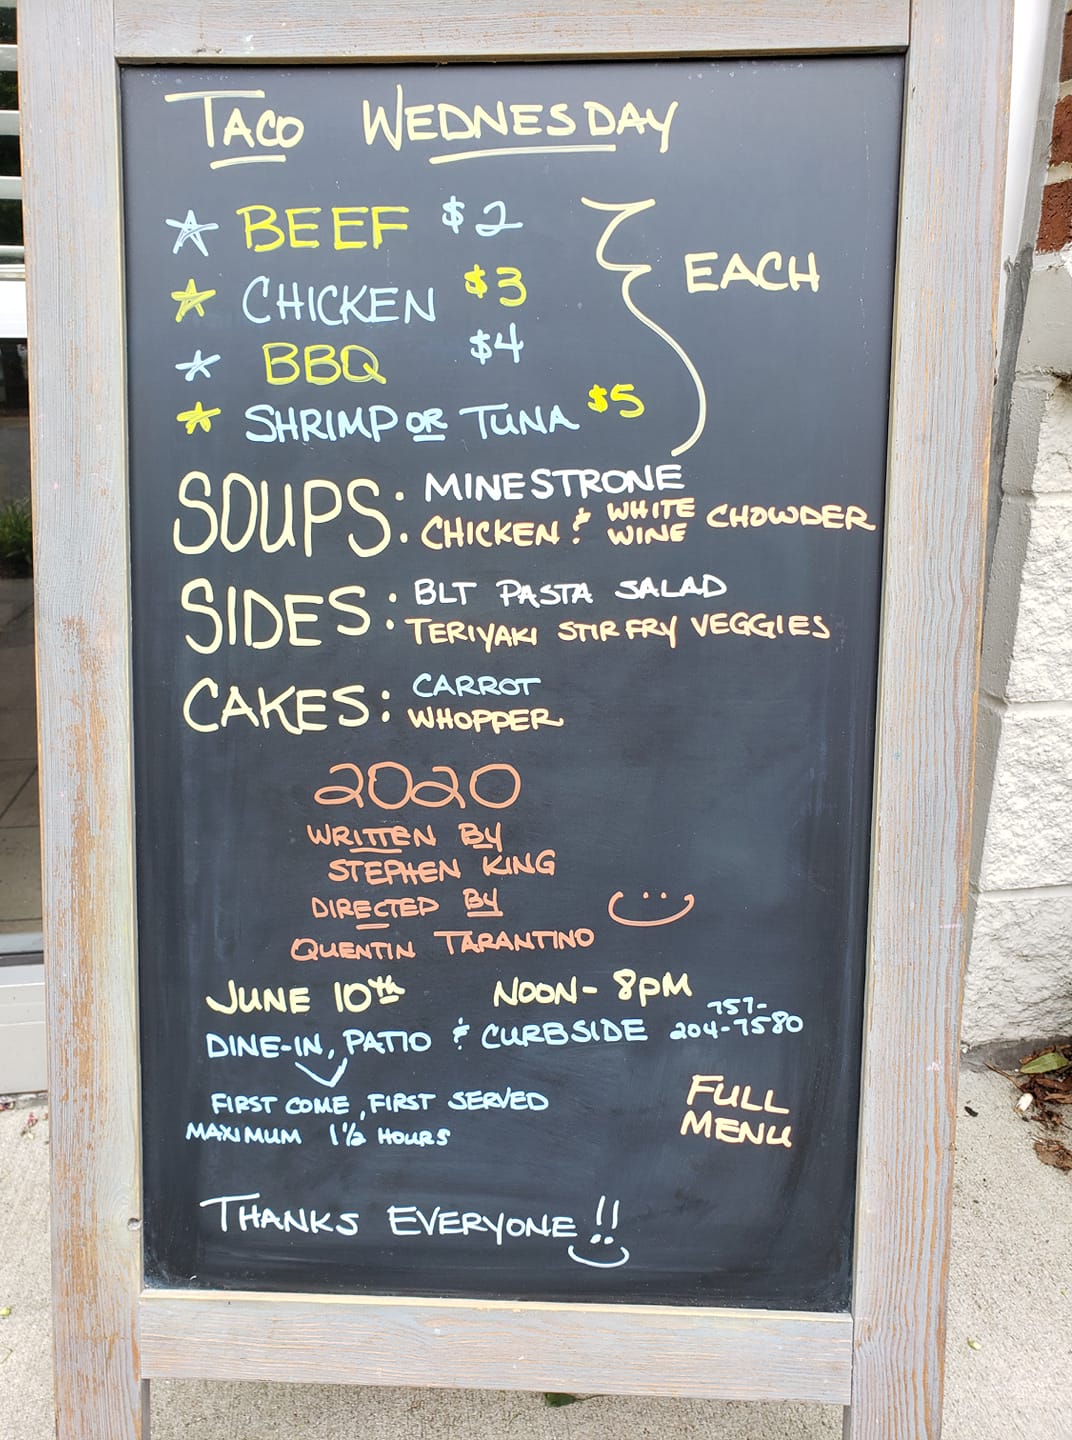 TACO WEDNESDAY
BEEF $2
CHICKEN $3
BBQ $4
SHRIMP OR TUNA $5
EACH
SOUPS: MINESTRONE
CHICKEN & WHITE WINE CHOWDER
SIDES: BLT PASTA SALAD
TERIYAKI STIR FRY VEGGIES
CAKES: CARROT
WHOPPER
2020
WRITTEN BY
STEPHEN KING
DIRECTED BY
QUENTIN TARANTINO
JUNE 10th NOON-8PM
DINE-IN, PATIO & CURBSIDE 757-204-7580
FIRST COME, FIRST SERVED
MAXIMUM 1½ HOURS
FULL
MENU
THANKS EVERYONE!!